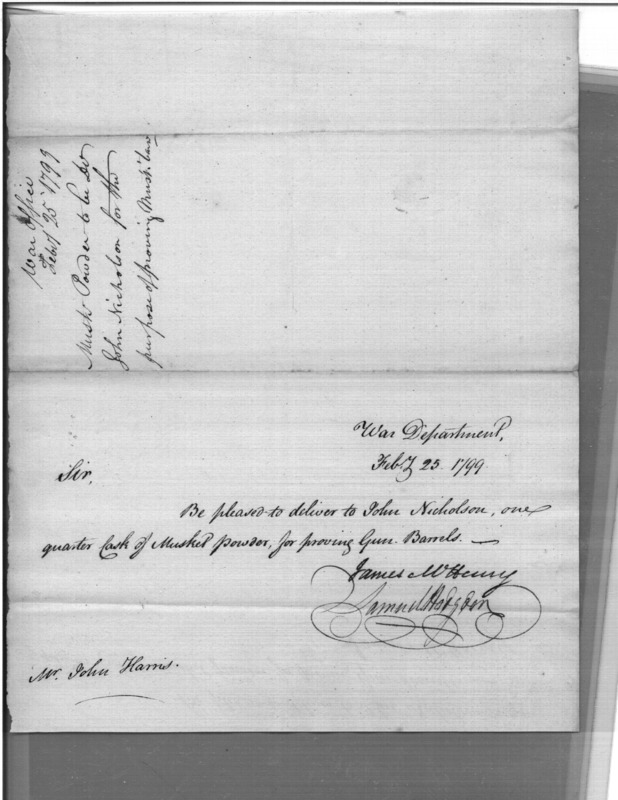 War Office
Feby 25 1799
Musk Powder to be Dd
John Nicholson for the
purpose of proving Musk
War Department,
Feby 25. 1799
Sir,
Be pleased to deliver to John Nicholson, one
quarter Cask of Musket Powder, for proving Gun Barrels.
James McHenry
Samuel Hodgdon
Mr. John Harris.